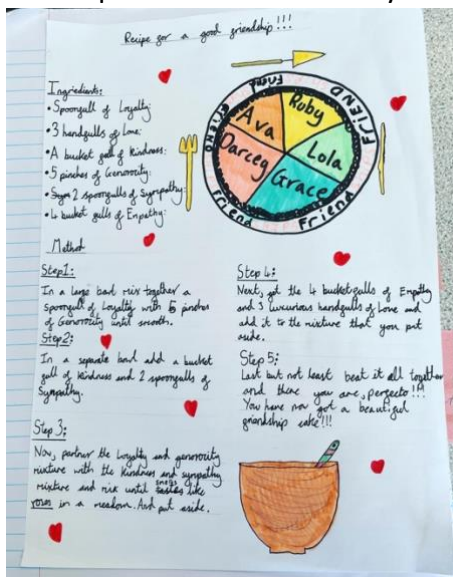 Recipe for a good friendship!!!
Ingredients:
• Spoonfull of Loyalty:
• 3 handfulls of Love:
• A bucket full of Kindness:
• 5 pinches of Generosity:
• 2 spoonfulls of Sympathy:
• 4 bucket fulls of Empathy:
friend
FRIEND
Friend
friend
friend
Ava
Ruby
Lola
Grace
Darcey
Method
Step1:
In a large bowl mix together a
spoonfull of Loyalty with 5 pinches
of Generosity until smooth.
Step2:
In a separate bowl add a bucket
full of Kindness and 2 spoonfulls of
Sympathy.
Step 3:
Now, partner the Loyalty and generosity
mixture with the Kindness and sympathy
mixture and mix until smells like
roses in a meadow. And put aside.
Step 4:
Next, get the 4 bucketfulls of Empathy
and 3 luxurious handfulls of Love and
add it to the mixture that you put
aside.
Step 5:
Last but not least beat it all together
and there you are, perfecto!!!
You have now got a beautiful
friendship cake!!!